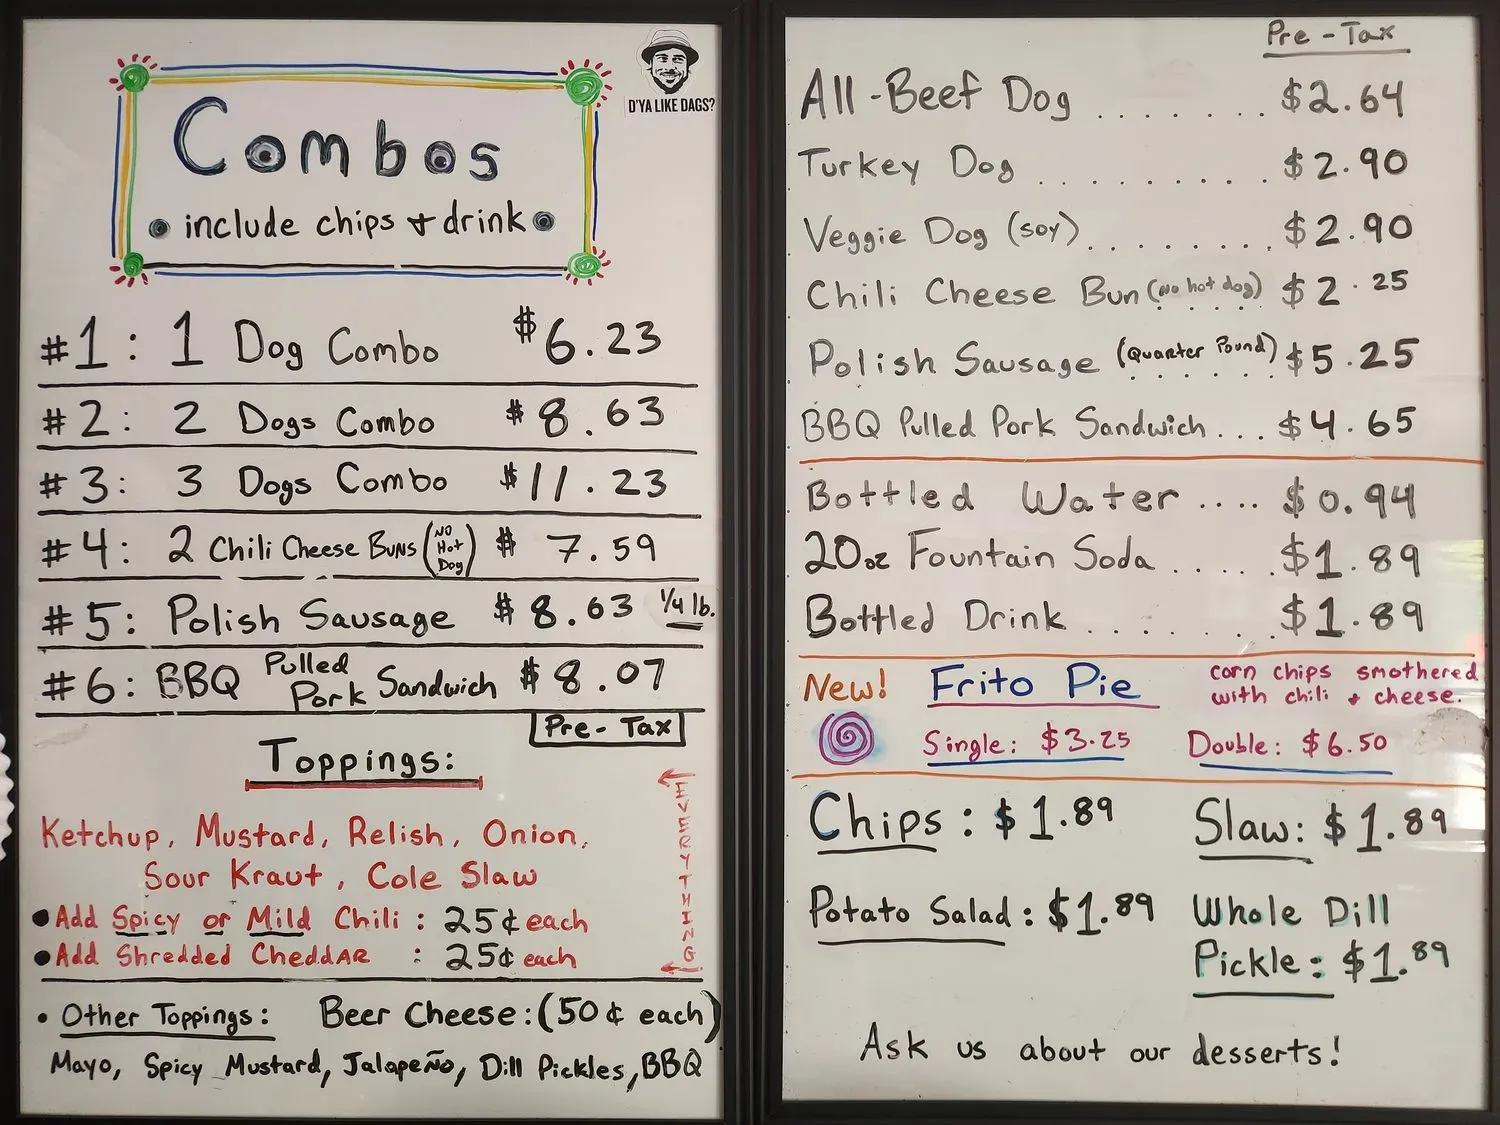 D'YA LIKE DAGS?
Combos
include chips + drink
#1: 1 Dog Combo $6.23
#2: 2 Dogs Combo $8.63
#3: 3 Dogs Combo $11.23
#4: 2 Chili Cheese Buns (No Hot Dog) $7.59
#5: Polish Sausage $8.63 1/4 lb.
#6: BBQ Pulled Pork Sandwich $8.07
Pre-Tax
Toppings:
Ketchup, Mustard, Relish, Onion,
Sour Kraut, Cole Slaw
• Add Spicy or Mild Chili: 25¢ each
• Add Shredded Cheddar: 25¢ each
EVERYTHING
• Other Toppings: Beer Cheese: (50¢ each)
Mayo, Spicy Mustard, Jalapeño, Dill Pickles, BBQ
Pre-Tax
All-Beef Dog ........ $2.64
Turkey Dog .......... $2.90
Veggie Dog (soy)........ $2.90
Chili Cheese Bun (no hot dog) .... $2.25
Polish Sausage (Quarter Pound) .... $5.25
BBQ Pulled Pork Sandwich ... $4.65
Bottled Water .... $0.94
20oz Fountain Soda ...... $1.89
Bottled Drink ........ $1.89
New! Frito Pie corn chips smothered
with chili + cheese.
Single: $3.25 Double: $6.50
Chips: $1.89 Slaw: $1.89
Potato Salad: $1.89 Whole Dill
Pickle: $1.89
Ask us about our desserts!